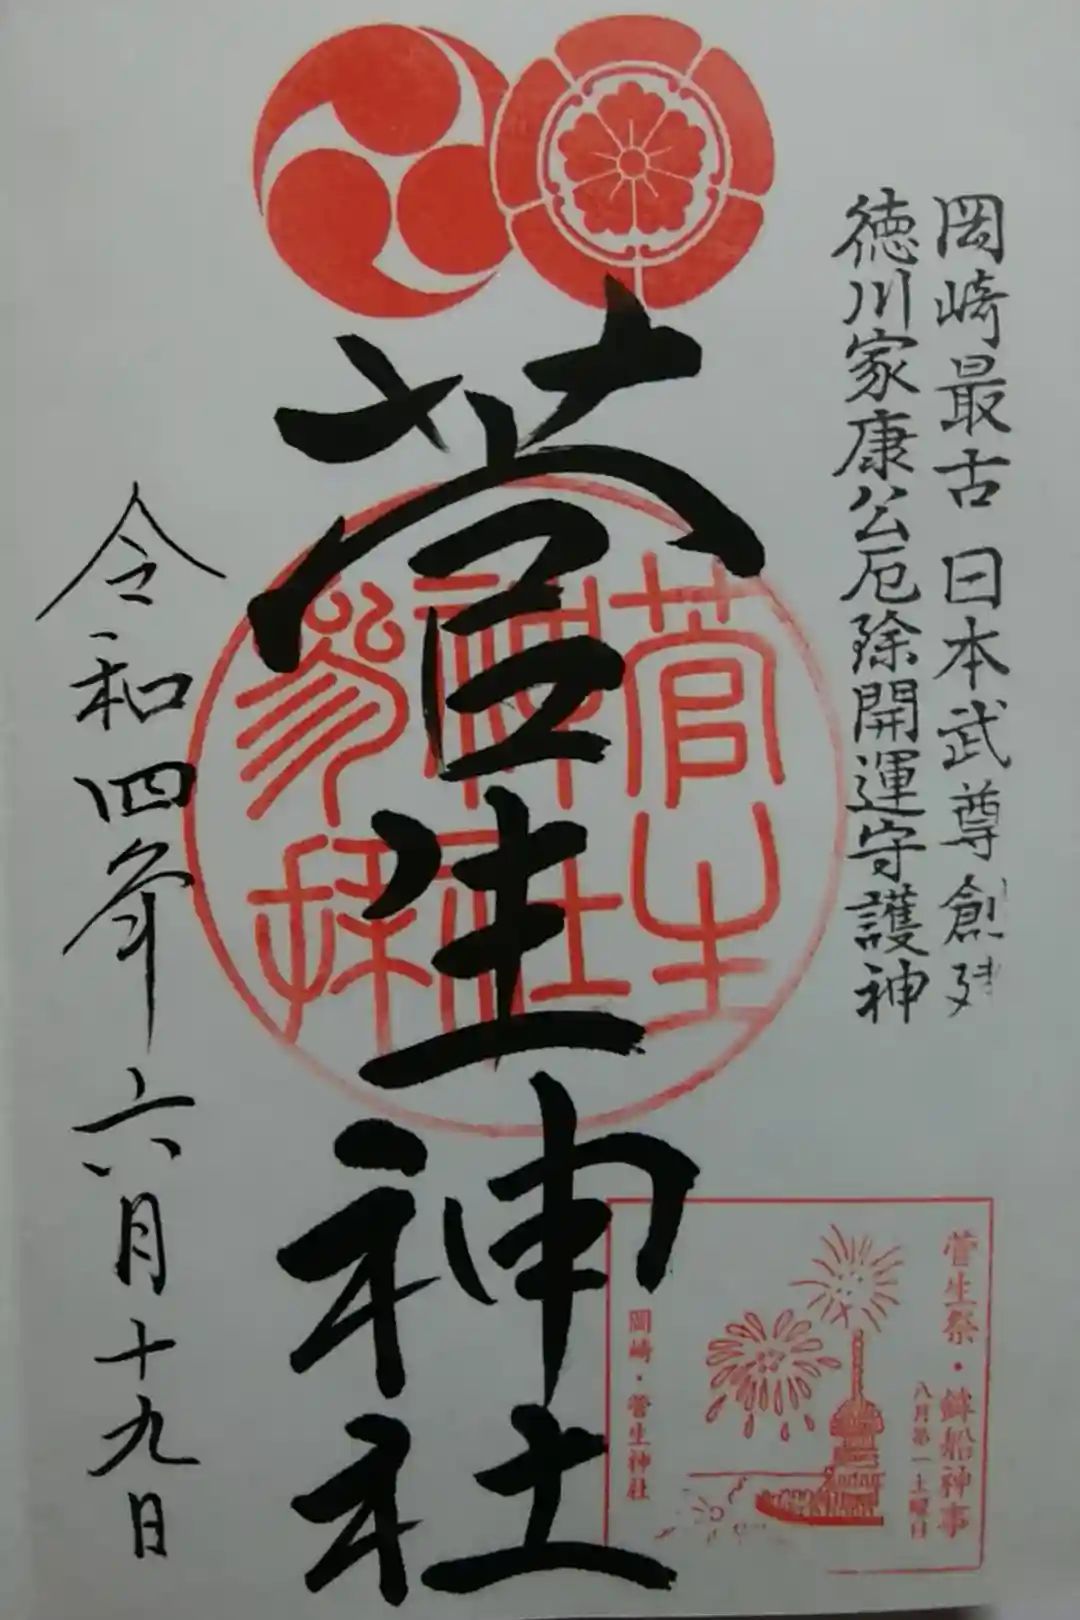 岡崎最古 日本武尊創建
徳川家康公厄除開運守護神
菅生神社
菅生
神社
参拝
令和四年六月十九日
菅生祭・鉾船神事
八月第一土曜日
岡崎・菅生神社